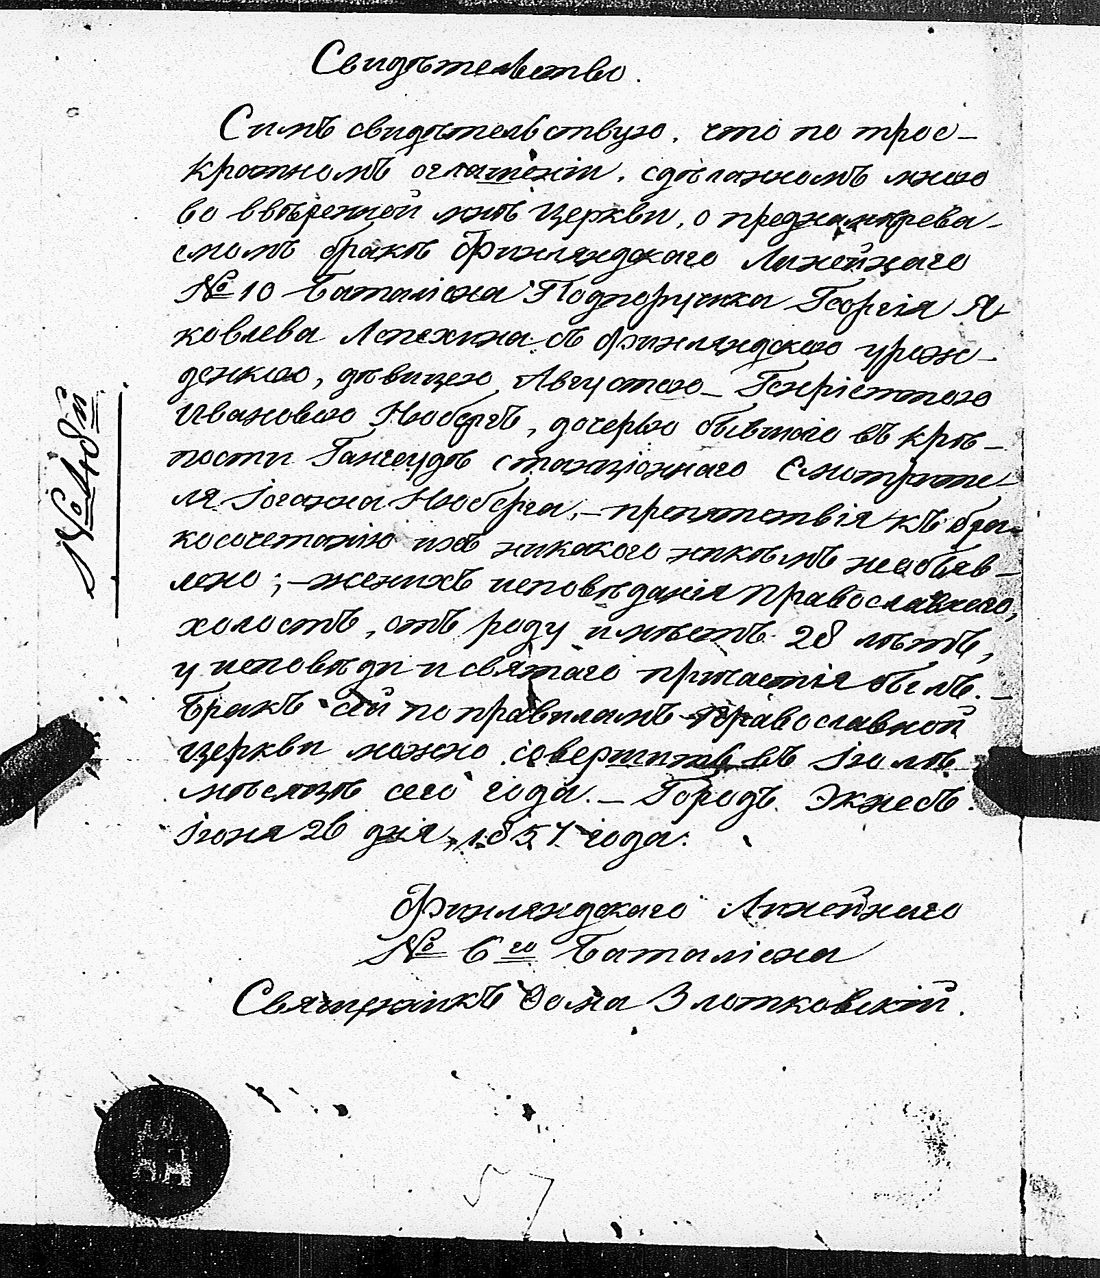 Свидѣтельство.
Симъ свидѣтельствую, что по трое-
кратномъ оглашеніи, сдѣланномъ мною
во ввѣренной мнѣ Церкви, о преднамѣрева-
емомъ бракѣ Финляндскаго Линейнаго
№ 10 Баталіона Подпоручика Георгія Я-
ковлева Лопехина съ финляндскою урож-
денкою, дѣвицею Августою-Генріеттою
Ивановою Нюбергъ, дочерью бывшаго въ крѣ-
пости Гангеудѣ станціоннаго Смотрите-
ля Іоганна Нюберга,-препятствія къ бра-
косочетанію ихъ никакого никѣмъ необъяв-
лено;-женихъ исповѣданія Православнаго,
холостъ, отъ роду имѣетъ 28 лѣтъ,
у исповѣди и святаго причастія былъ.-
Бракъ сей по правиламъ Православной
Церкви можно совершить въ Іюлѣ
мѣсяцѣ сего года.-Городъ Экнесъ.
Іюня 26 дня, 1857 года.
Финляндскаго Линейнаго
№ 6го Баталіона
Священникъ Фома Злотковскій.
№ 40й
57